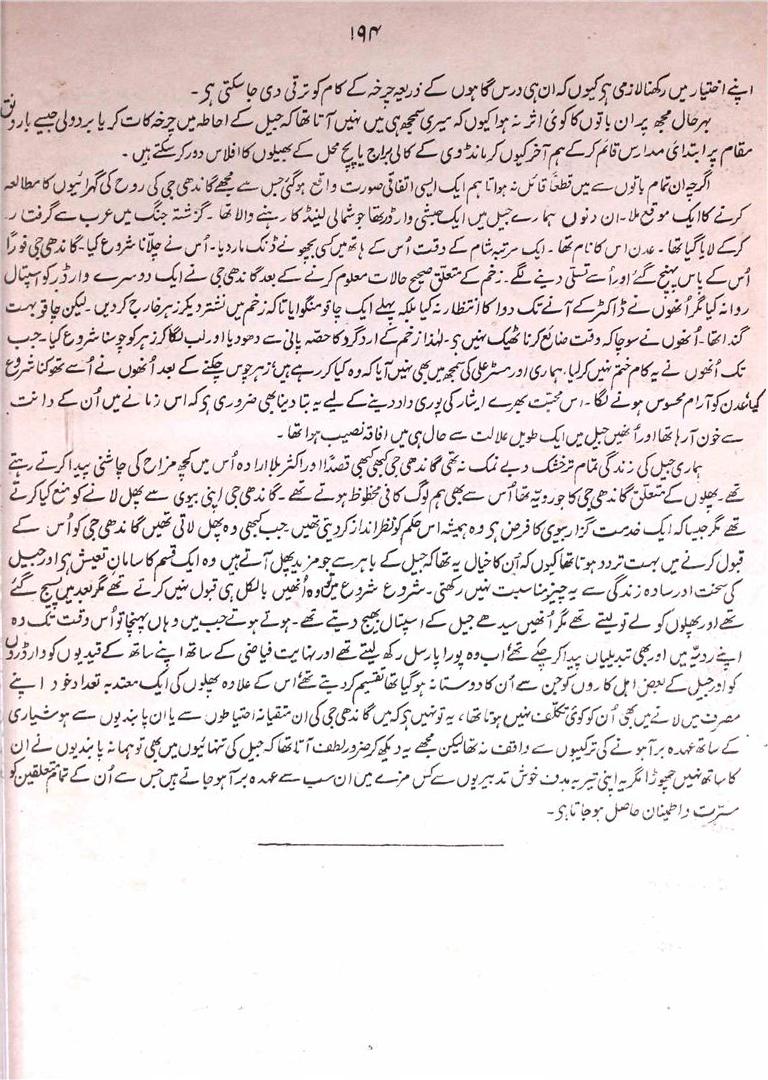 ۱۹۴
اپنے اختیار میں رکھنا لازمی ہے کیوں کہ ان ہی درس گاہوں کے ذریعہ چرخہ کے کام کو ترقی دی جا سکتی ہے۔
بہرحال مجھ پر ان باتوں کا کوئی اثر نہ ہوا کیوں کہ میری سمجھ ہی میں نہیں آتا تھا کہ جیل کے احاطہ میں چرخہ کات کر یا بردولی جیسے بارونق
مقام پر ابتدائی مدارس قائم کر کے ہم آخر کیوں کر مانڈوی کے کالی پراج یا پنچ محل کے بھیلوں کا افلاس دور کر سکتے ہیں۔
اگرچہ ان تمام باتوں سے میں قطعاً قائل نہ ہوا تاہم ایک ایسی اتفاقی صورت واقع ہو گئی جس سے مجھے گاندھی جی کی روح کی گہرائیوں کا مطالعہ
کرنے کا ایک موقع ملا۔ ان دنوں ہمارے جیل میں ایک حبشی وارڈر تھا جو شمالی لینڈ کا رہنے والا تھا۔ گزشتہ جنگ میں عرب سے گرفتار
کر کے لایا گیا تھا۔ عدن اس کا نام تھا۔ ایک مرتبہ شام کے وقت اُس کے ہاتھ میں کسی بچھو نے ڈنک مار دیا۔ اُس نے چلّانا شروع کیا۔ گاندھی جی فوراً
اُس کے پاس پہنچ گئے اور اُسے تسلی دینے لگے۔ زخم کے متعلق صحیح حالات معلوم کرنے کے بعد گاندھی جی نے ایک دوسرے وارڈر کو اسپتال
روانہ کیا مگر اُنھوں نے ڈاکٹر کے آنے تک دوا کا انتظار نہ کیا بلکہ پہلے ایک چاقو منگوایا تاکہ زخم میں نشتر دیکر زہر خارج کر دیں۔ لیکن چاقو بہت
گندا تھا۔ اُنھوں نے سوچا کہ وقت ضائع کرنا ٹھیک نہیں ہے۔ لہٰذا زخم کے ارد گرد کا حصّہ پانی سے دھو دیا اور لب لگا کر زہر کو چوسنا شروع کیا۔ جب
تک اُنھوں نے یہ کام ختم نہیں کر لیا ہماری اور مسٹر علی کی سمجھ میں بھی نہیں آیا کہ وہ کیا کر رہے ہیں؛ زہر چوس چکنے کے بعد اُنھوں نے اُسے تھوکنا شروع
کیا عدن کو آرام محسوس ہونے لگا۔ اس محبت بھرے ایثار کی پوری داد دینے کے لیے یہ بتا دینا بھی ضروری ہے کہ اس زمانے میں اُن کے دانت
سے خون آ رہا تھا اور اُنھیں جیل میں ایک طویل علالت سے حال ہی میں افاقہ نصیب ہوا تھا۔
ہماری جیل کی زندگی تمام تر خشک و بے نمک نہ تھی گاندھی جی کبھی کبھی قصداً اور اکثر بلا ارادہ اُس میں کچھ مزاح کی چاشنی پیدا کرتے رہتے
تھے۔ پھلوں کے متعلق گاندھی جی کا جو رویّہ تھا اُس سے بھی ہم لوگ کافی محظوظ ہوتے تھے۔ گاندھی جی اپنی بیوی سے پھل لانے کو منع کیا کرتے
تھے مگر جیسا کہ ایک خدمت گزار بیوی کا فرض ہے وہ ہمیشہ اس حکم کو نظر انداز کر دیتی تھیں جب کبھی وہ پھل لاتی تھیں گاندھی جی کو اُس کے
قبول کرنے میں بہت تردد ہوتا تھا کیوں کہ اُن کا خیال یہ تھا کہ جیل کے باہر سے جو مزید پھل آتے ہیں وہ ایک قسم کا سامان تعیش ہے اور جیل
کی سخت اور سادہ زندگی سے یہ چیز مناسبت نہیں رکھتی۔ شروع شروع میں تو وہ اُنھیں بالکل ہی قبول نہیں کرتے تھے مگر بعد میں پسیج گئے
تھے اور پھلوں کو لے تو لیتے تھے مگر اُنھیں سیدھے جیل کے اسپتال بھیج دیتے تھے۔ ہوتے ہوتے جب میں وہاں پہنچا تو اُس وقت تک وہ
اپنے رویّہ میں اور بھی تبدیلیاں پیدا کر چکے تھے اب وہ پورا پارسل رکھ لیتے تھے اور نہایت فیاضی کے ساتھ اپنے ساتھ کے قیدیوں کو وارڈروں
کو اور جیل کے بعض اہل کاروں کو جن سے اُن کا دوستانہ ہو گیا تھا تقسیم کر دیتے تھے اُس کے علاوہ پھلوں کی ایک معتدبہ تعداد خود اپنے
مصرف میں لانے میں بھی اُن کو کوئی تکلّف نہیں ہوتا تھا، یہ تو نہیں ہے کہ میں گاندھی جی کی ان متقیانہ احتیاطوں سے یا ان پابندیوں سے ہوشیاری
کے ساتھ عہدہ برآ ہونے کی ترکیبوں سے واقف نہ تھا لیکن مجھے یہ دیکھ کر ضرور لطف آتا تھا کہ جیل کی تنہائیوں میں بھی توہمانہ پابندیوں نے ان
کا ساتھ نہیں چھوڑا مگر یہ اپنی تیر بہ ہدف خوش تدبیریوں سے کس مزے میں ان سب سے عہدہ برآ ہو جاتے ہیں جس سے اُن کے تمام متعلقین کو
مسرّت و اطمینان حاصل ہو جاتا ہے۔